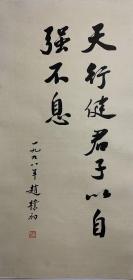 天行健君子以自
强不息
一九九八年 趙樸初